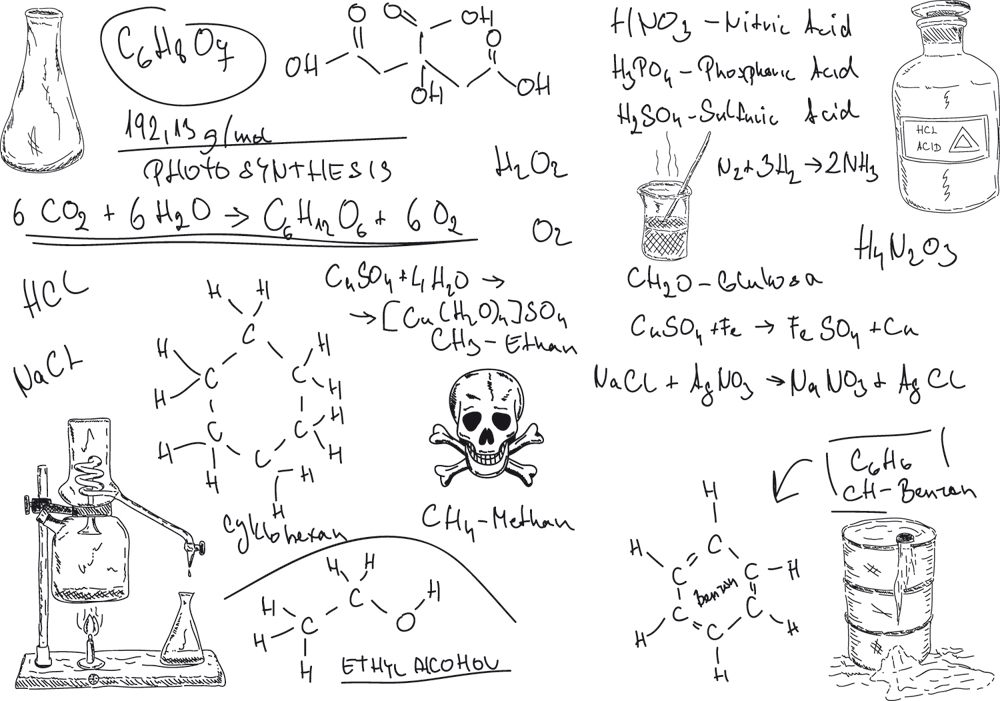 C6H8O7
OH
O
O
OH
O
OH
OH
192,13 g/mol
PHOTOSYNTHESIS
6 CO2 + 6 H2O → C6H12O6 + 6 O2
H2O2
O2
HNO3 – Nitric Acid
H3PO4 – Phosphoric Acid
H2SO4 – Sulfuric Acid
N2 + 3H2 → 2NH3
HCL
ACID
H4N2O3
HCL
NaCL
CuSO4 + 4H2O →
→ [Cu(H2O)4]SO4
CH3 – Ethan
CH2O – Glukosa
CuSO4 + Fe → FeSO4 + Cu
NaCL + AgNO3 → NaNO3 + AgCL
H H
C
H C C H
H H
H C C H
H C H
H
H
Cyklohexan
CH4 – Methan
C6H6
CH – Benzan
H
H C
C C – H
Benzan
C C
H C H
H
H H
H C H
H C O
H
ETHYL ALCOHOL